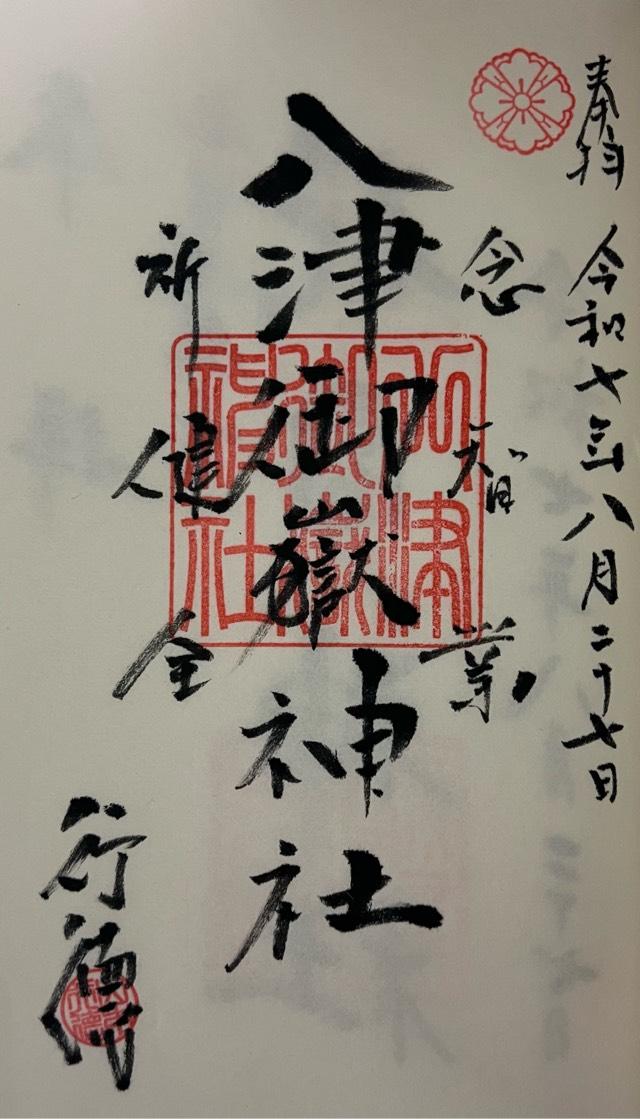 奉拝 令和七年八月二十七日
念智業
八津御嶽神社
祈健全
行徳
八津御嶽神社